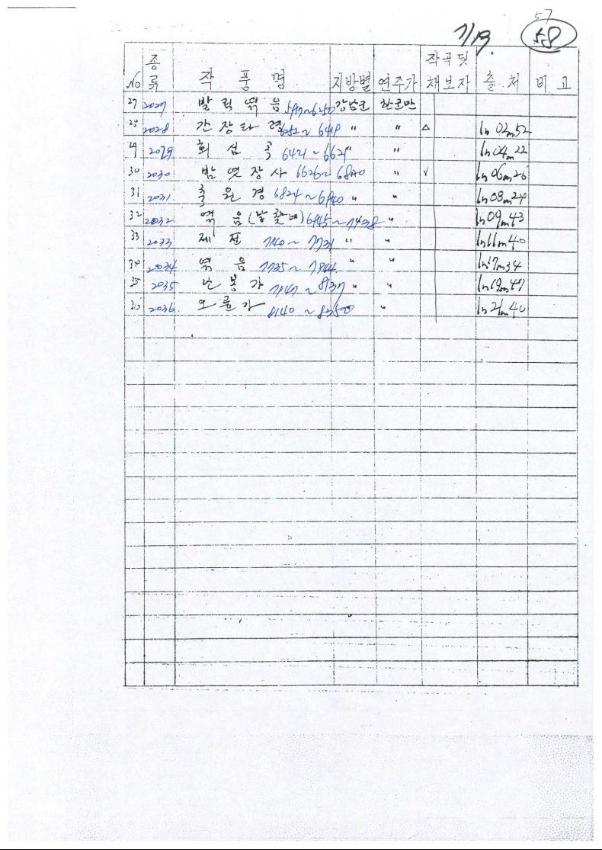 57
7/19. 58
No 종류 작품명 지방별 연주가 작곡및채보자 출처 비고
27 2027 발럭엮음 5917~6250 강남도 한근만
28 2028 간장타령 6252~6418 〃 〃 △ 1h 02m52
29 2029 회심곡 6421~6621 〃 〃 1h 04m22
30 2030 밤엿장사 6626~6820 〃 〃 √ 1h 06m26
31 2031 축원경 6824~6940 〃 〃 1h 08m24
32 2032 엮음 6945~7438 〃 1h 09m43
33 2033 제전 7440~7731 〃 〃 1h 11m40
34 2034 엮음 7735~7944 〃 〃 1h 17m34
35 2035 난봉가 7947~8137 〃 1h 19m47
36 2036 오돌가 8140~8350 〃 1h 21m40